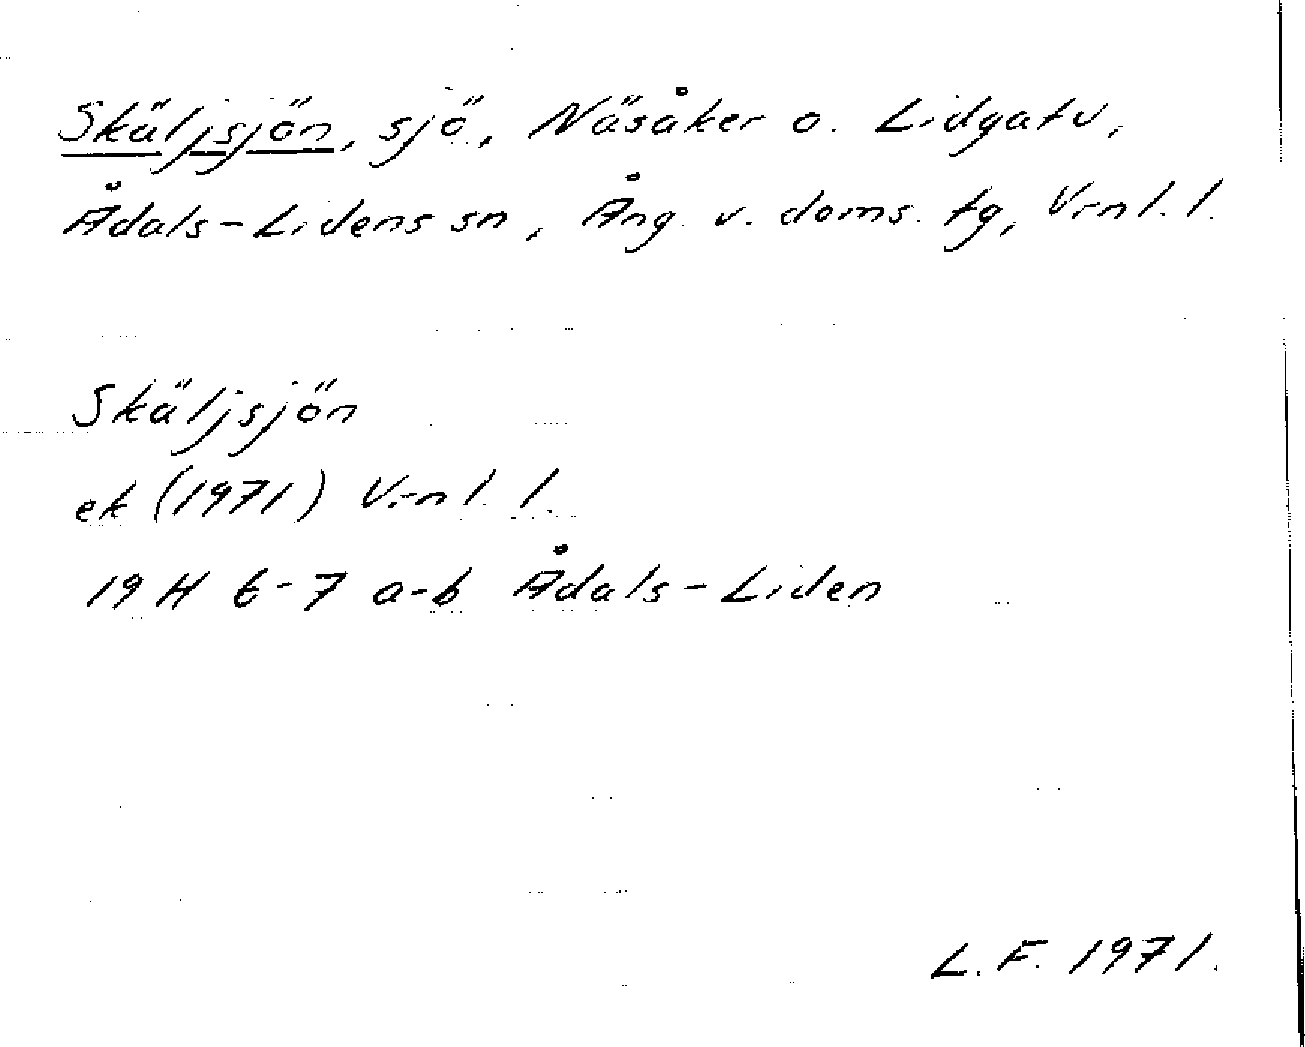 Skäljsjön, sjö, Näsåker o. Lidgatu,
Ådals-Lidens sn, Ång. v. doms. tg, Vrnl. l.
Skäljsjön
ek (1971) Vrnl. l.
19 H 6-7 a-b Ådals-Liden
L. F. 1971.